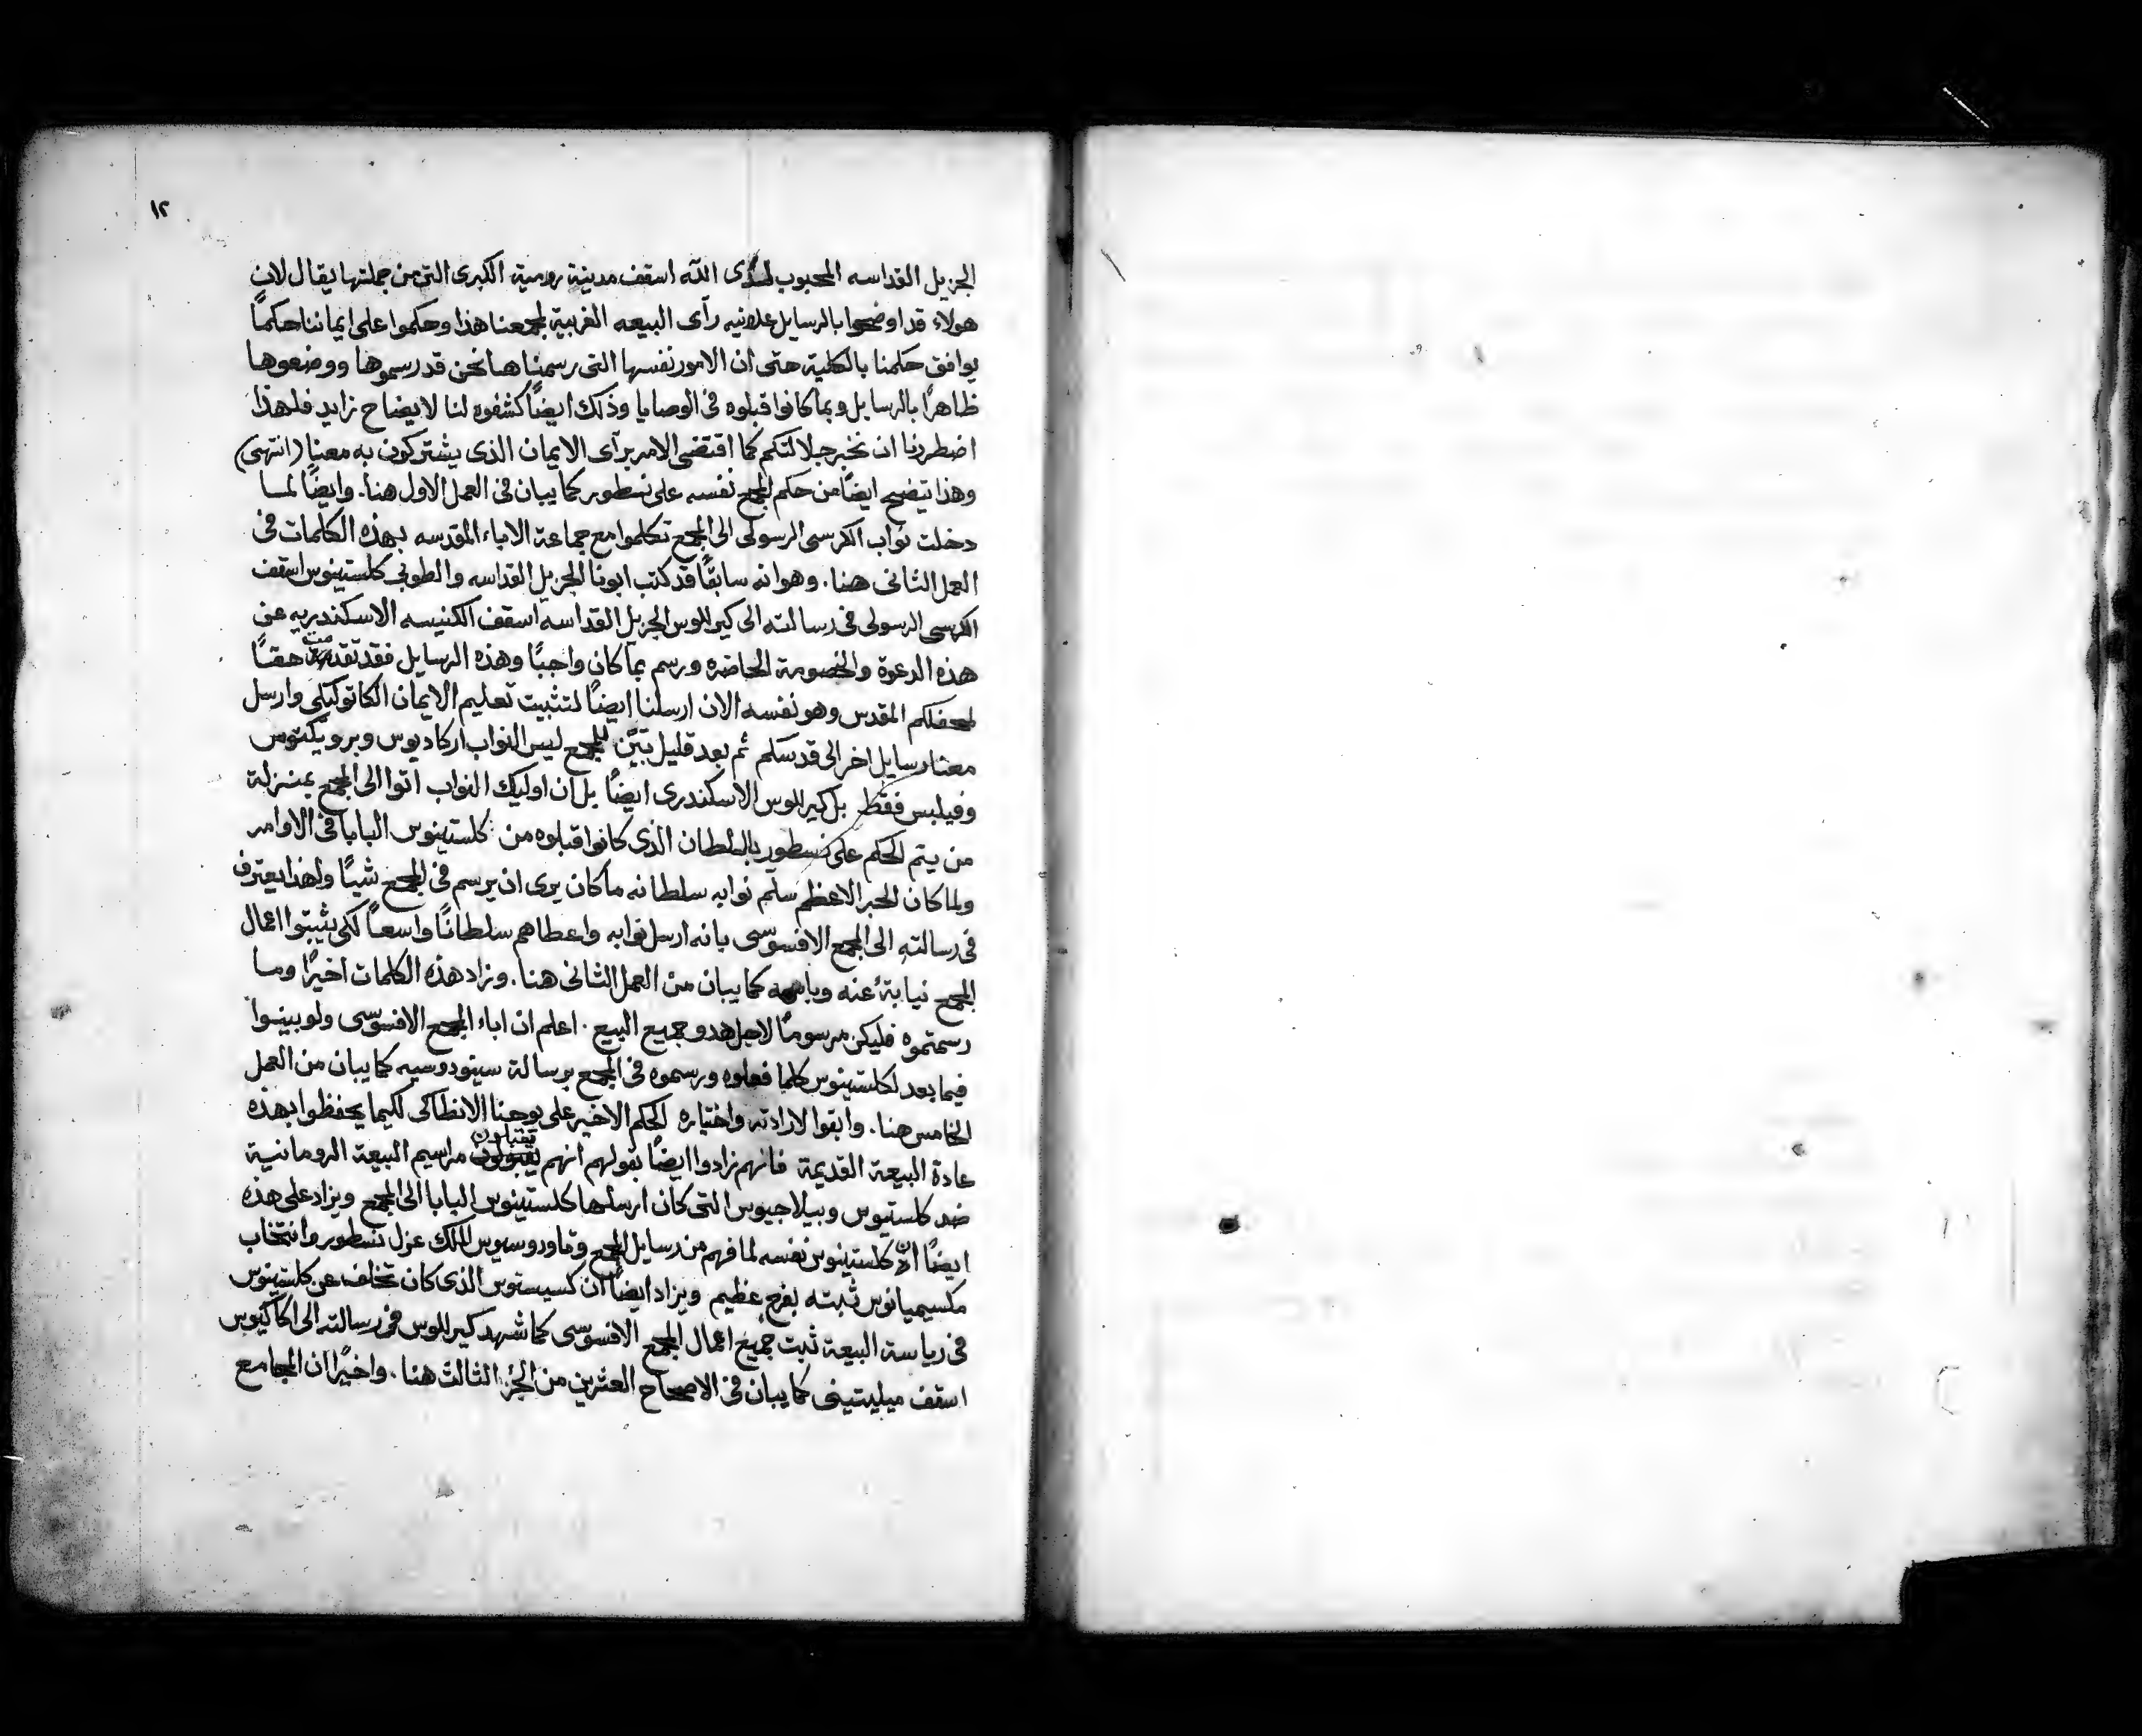 ١٢
الجزيل القداسه المحبوب لدى الله اسقف مدينة رومية الكبرى التى من جملتها يقال لان
هولاء قد اوضحوا بالرسايل علانيه رآى البيعه الغربية لمجمعنا هذا وحكموا على ايماننا حكمًا
يوافق حكمنا بالكلية حتى ان الامور نفسها التى رسمناها نحن قد رسموها ووضعوها
ظاهرًا بالرسايل وبما كانوا قبلوه فى الوصايا وذلك ايضًا كشفوه لنا لايضاح زايد فلهذا
اضطررنا ان نخبر جلالتكم كما اقتضى الامر برآى الايمان الذى يشتركون به معنا (انتهى)
وهذا يتضح ايضًا من حكم المجمع نفسه على نسطور كما يبان فى العمل الاول هنا. وايضًا لمسا
دخلت نواب الكرسى الرسولى الى المجمع تكلموا مع جماعة الاباء المقدسه بهذه الكلمات فى
العمل الثانى هنا. وهو انه سابقًا قد كتب ابونا الجزيل القداسه والطوبى كلستينوس اسقف
الكرسى الرسولى فى رسالته الى كيرللوس الجزيل القداسه اسقف الكنيسه الاسكندريه عن
هذه الدعوة والخصومة الحاضره ورسم بما كان واجبًا وهذه الرسايل فقد تقدمت حقًا
لمحفلكم المقدس وهو نفسه الان ارسلنا ايضًا لتثبيت تعليم الايمان الكاتوليكى وارسل
معنا رسايل اخر الى قدسكم ثم بعد قليل بيّن للمجمع ليس النواب اركاديوس وبرويكتوس
وفيلبس فقط بل كيرللوس الاسكندرى ايضًا بل ان اوليك النواب اتوا الى المجمع بمنزلة
من يتم الحكم على نسطور بالسلطان الذى كانوا قبلوه من كلستينوس البابا فى الاوامر
ولما كان الحبر الاعظم سلم نوابه سلطانه ما كان يرى ان يرسم فى المجمع شيًا ولهذا يعترف
فى رسالته الى المجمع الافسوسى بانه ارسل نوابه واعطاهم سلطانًا واسعًا لكى يثبتوا اعمال
المجمع نيابةً عنه وبامره كما يبان من العمل الثانى هنا. وزاد هذه الكلمات اخيرًا وما
رسمتموه فليكن مرسومًا لاجل هدو جميع البيع. اعلم ان اباء المجمع الافسوسى ولو بينوا
فيما بعد لكلستينوس كلما فعلوه ورسموه فى المجمع برسالة سينودوسيه كما يبان من العمل
الخامس هنا. وابقوا لارادته واختياره الحكم الاخير على يوحنا الانطاكى لكيما يحفظوا بهذه
عادة البيعة القديمة فانهم زادوا ايضًا بقولهم انهم يقبلون مراسيم البيعة الرومانية
ضد كلستيوس وبيلاجيوس التى كان ارسلها كلستينوس البابا الى المجمع ويزاد على هذه
ايضًا ان كلستينوس نفسه لما فهم من رسايل المجمع وتاودوسيوس الملك عزل نسطور وانتخاب
مكسيميانوس ثبته بفرح عظيم ويزاد ايضًا ان كسيستوس الذى كان تخلف عن كلستينوس
فى رياسة البيعة ثبت جميع اعمال المجمع الافسوسى كما شهد كيرللوس فى رسالته الى اكاكيوس
اسقف ميليتينى كما يبان فى الاصحاح العشرين من الجزء الثالث هنا. واخيرًا ان المجامع